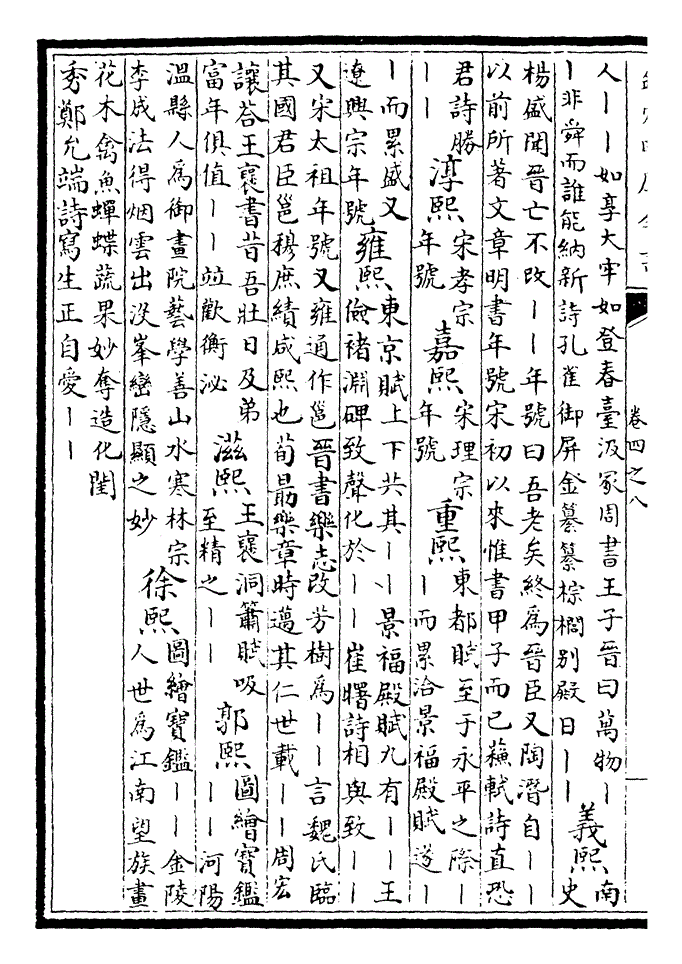 欽定四庫全書
卷四之八
人｜｜如享大牢如登春臺汲冢周書王子晉曰萬物｜
｜非舜而誰能納新詩孔雀御屏金蟇纂棕櫚別殿日｜｜
義熙
南
史
楊盛聞晉亡不改｜｜年號曰吾老矣終爲晉臣又陶潛自｜｜
以前所著文章明書年號宋初以來惟書甲子而已蘇軾詩直恐
君詩勝
｜｜
淳熙
宋孝宗
年號
嘉熙
宋理宗
年號
重熙
東都賦至于永平之際｜
｜而累洽景福殿賦遂｜
｜而累盛又
遼興宗年號
雍熙
東京賦上下共其｜｜景福殿賦九有｜｜王
儉褚淵碑致聲化於｜｜崔曙詩相與致｜｜
又宋太祖年號又雍通作邕晉書樂志改芳樹爲｜｜言魏氏臨
其國君臣邕穆庶績咸熙也荀勗樂章時邁其仁世載｜｜周宏
讓荅王襃書昔吾壯日及弟
富年俱值｜｜竝歡衡泌
滋熙
王襃洞簫賦吸
至精之｜｜
郭熙
圖繪寶鑑
｜｜河陽
溫縣人爲御畫院藝學善山水寒林宗
李成法得烟雲出沒峯巒隱顯之妙
徐熙
圖繪寶鑑｜｜金陵
人世爲江南望族畫
花木禽魚蟬蝶蔬果妙奪造化閨
秀鄭允端詩寫生正自愛｜｜